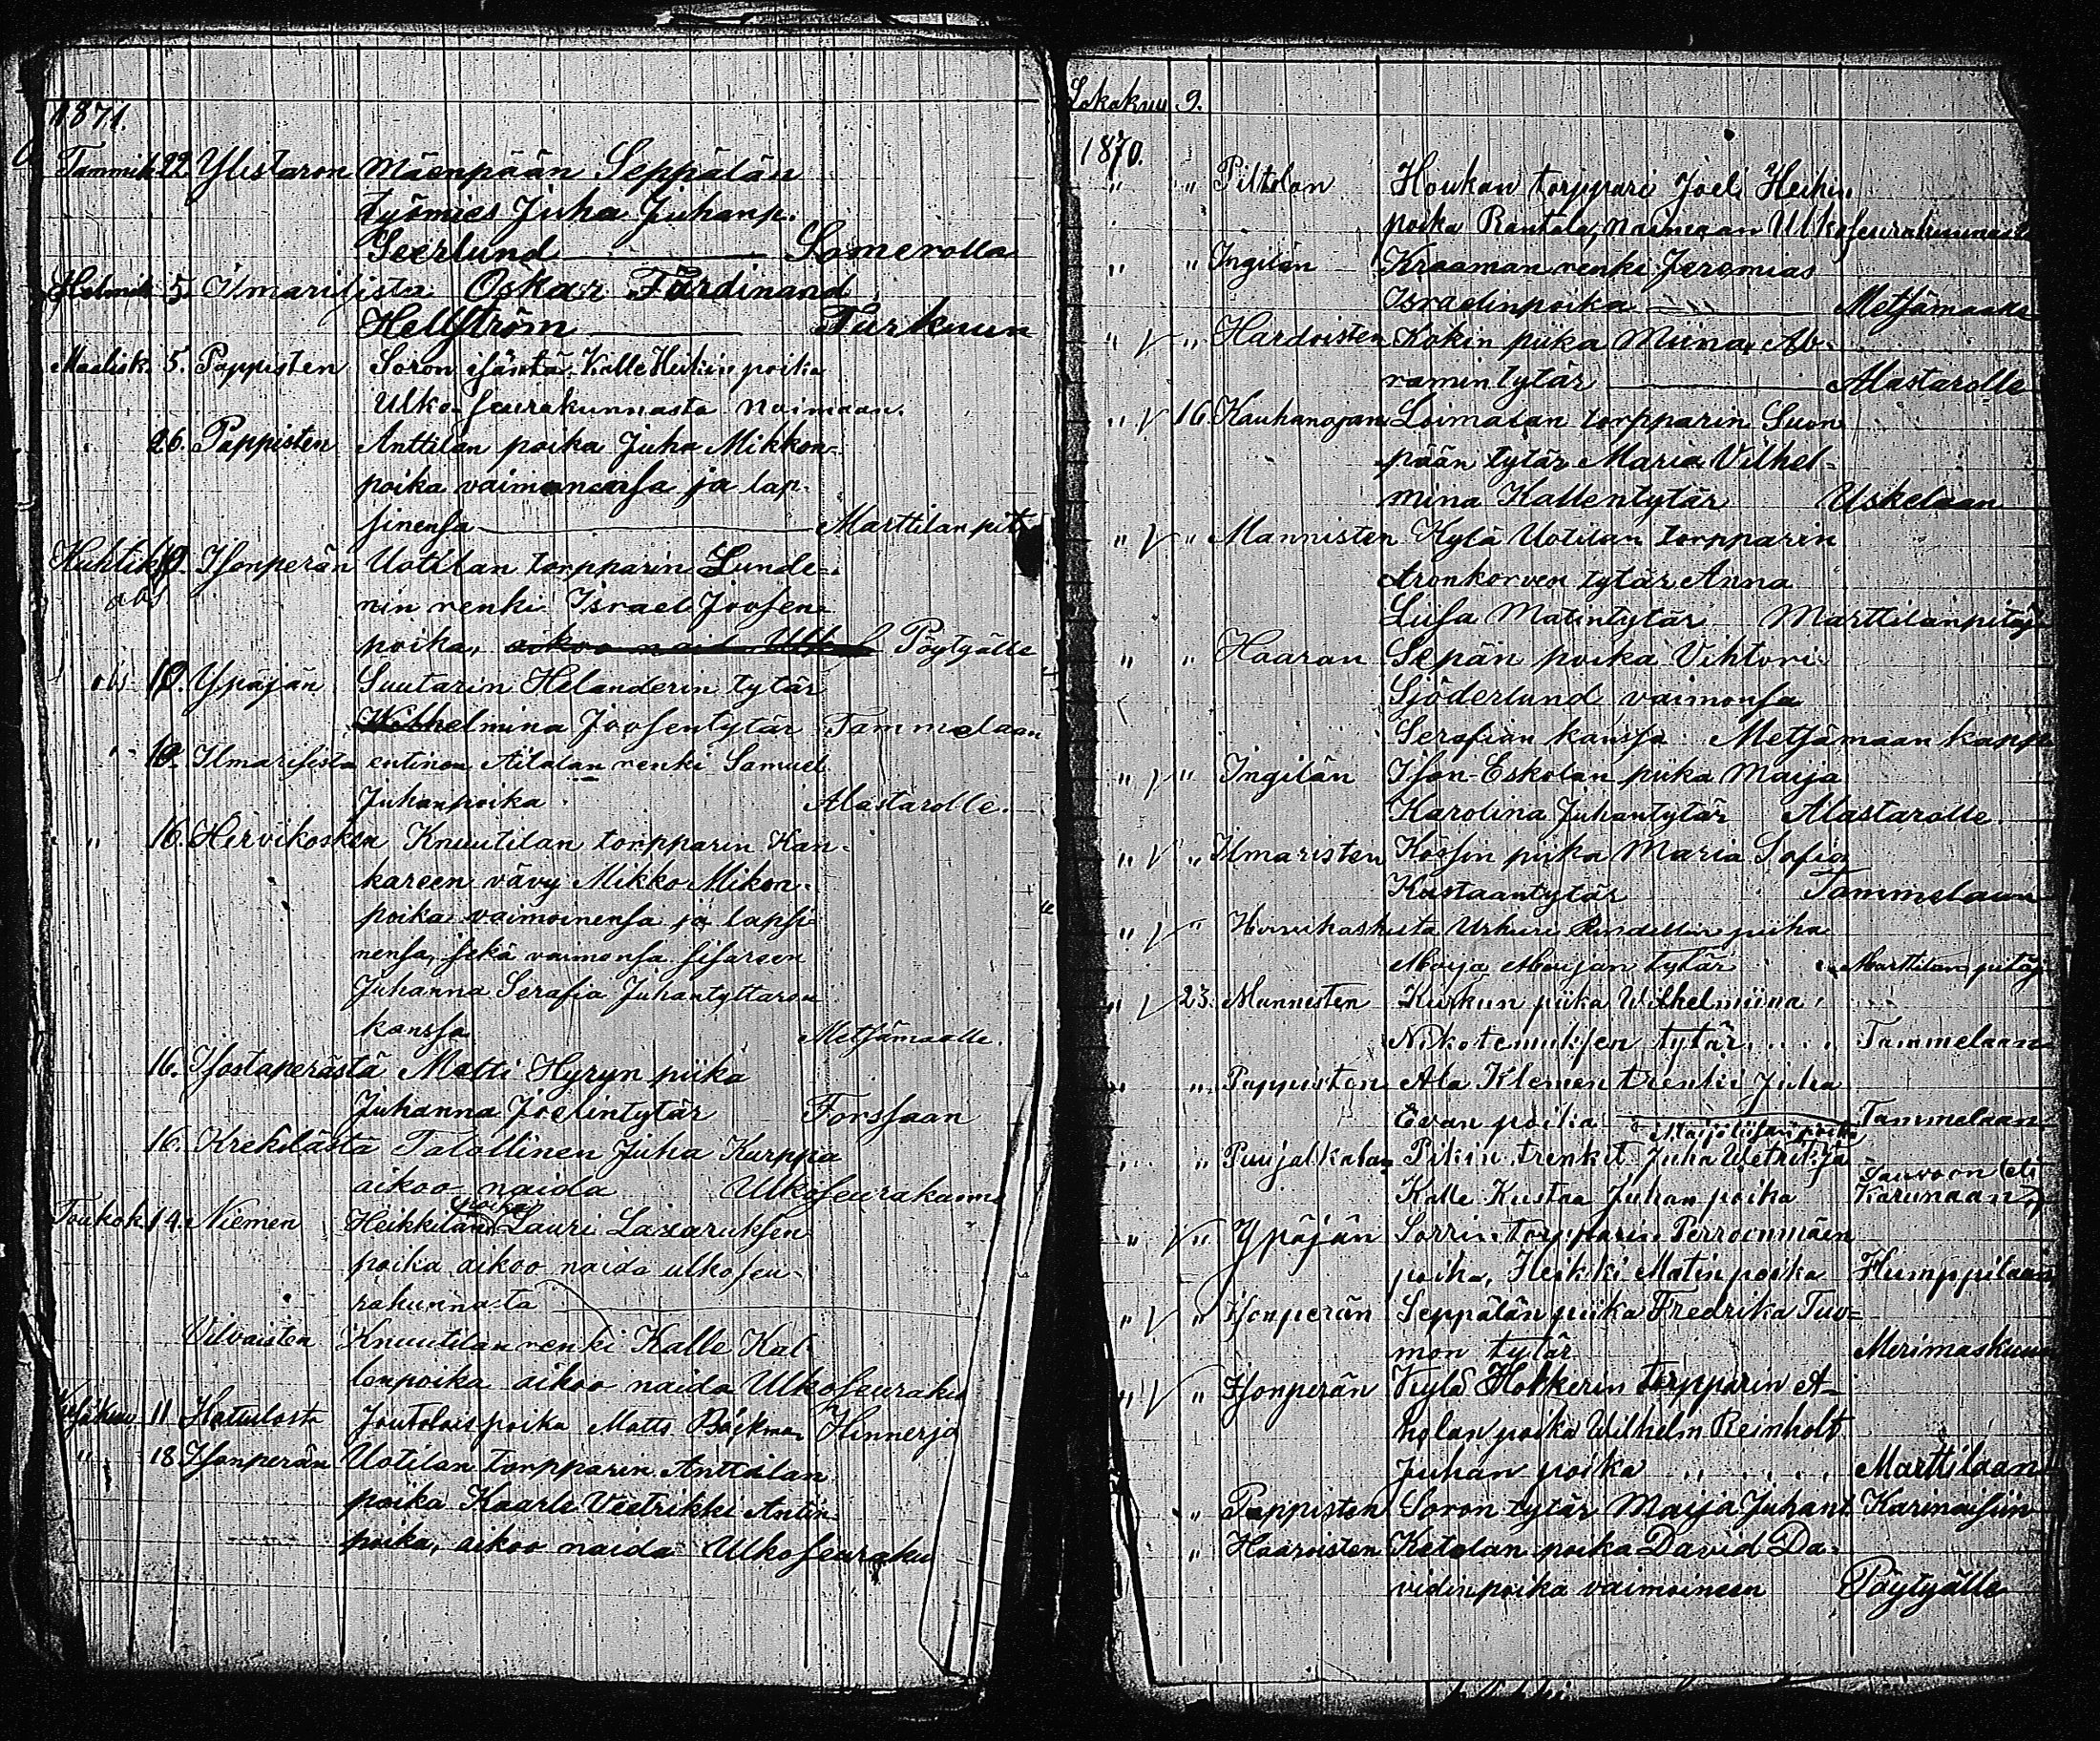 1871.
Tammik. 22. Ylistaron Mäenpään Seppälän
työmies Juha Juhanp.
Seerlund — Somerolla
Helmik. 5. Ilmarisista Oskar Färdinand
Hellström — Turkuun
Maalisk. 5. Pappisten Soron isäntä Kalle Heikin poika
Ulko-seurakunnasta naimaan.
" 26. Pappisten Anttilan poika Juha Mikkon-
poika vaimonensa ja lap-
sinensa — Marttilan pit
Huhtik. Isonperän Uotilan torpparin Lunde-
obs nin renki Israel Joosen-
poika, aikoo naida Ulk Pöytyälle
obs 10. Ypäjän Suutarin Helanderin tytär
Wilhelmina Joosentytär Tammelaan
" 10. Ilmarisista entinen Ailolan renki Samuel
Juhanpoika Alastarolle.
" 16. Hirvikosken Knuutilan torpparin Kan-
kareen vävy Mikko Mikon-
poika vaimoinensa ja lapsi-
nensa, sekä vaimonsa sisaren
Juhanna Serafia Juhantyttären
kanssa Metsämaalle.
16. Isostaperästä Matti Hyryn piika
Juhanna Joelintytär Forssaan
16. Krekilästä Talollinen Juha Kurppa
aikoo naida Ulkoseurakunna
Toukok. 14. Niemen Heikkilän poika Lauri Lasaruksen
poika aikoo naida ulkoseu-
rakunnasta
Vilvaisten Knuutilan renki Kalle Kal-
lenpoika aikoo naida Ulkoseuraku
Kesäkuu 11 Hattulosta Joutolais poika Matts Bäckman Hinnerjo
" 18 Isonperän Uotilan torpparin Anttilan
poika Kaarle Veetrikki Antin-
poika, aikoo naida Ulkoseuraku
Lokakuu 9.
1870.
" " Piltolan Houkan torppari Joeli Heikin
poika Rantala, naimaan Ulkoseurakunnasta
" " Ingilän Kraaman renki Jeremias
Israelinpoika — Metsämaalle
" " Hardoisten Kokin piika Miina Ab-
ramintytär — Alastarolle
" 16. Kauhanojan Loimalan torpparin Suon
pään tytär Maria Vilhel-
mina Kallentytär Uskelaan
" " Mannisten Kylä Uotilan torpparin
Aronkorven tytär Anna
Liisa Matintytär Marttilanpitäj
" " Haaran Sepän poika Vihtori
Sjöderlund vaimonsa
Serafian kanssa Metsämaan kappe
" " Ingilän Ison-Eskolan piika Maija
Karolina Juhantytär Alastarolle.
" " Ilmaristen Kössin piika Maria Sofia
Kustaantytär Tammelaan
" " Hirvikoskista Urkuri piika
Maija Maijan tytär Marttilan pitäj
" 23. Mannisten Kurkun piika Wilhelmiina
Nikotemuksen tytär.... Tammelaan
" " Pappisten Ala Klemen trenki Juha
Evan poika — Tammelaan
" " Puujalkalan Pikin trenkit Juha Wetrik Maijoliisan poika ja
Kalle Kustaa Juhan poika Sauvoon eli Karunaan
" " Ypäjän Sorrin torpparin Perroinmäen
poika, Heikki Matin poika Humppilaan
" " Isonperän Seppälän piika Fredrika Tuo-
mon tytär Merimaskuun
" " Isonperän Kylä Holkerin Torpparin A-
holan poika Wilhelm Reinholt
Juhan poika ..... Marttilaan
" Pappisten Soron tytär Maija Juhant. Karinaisiin
" Haaroisten Ketolan poika David Da-
vidinpoika vaimoineen Pöytyälle